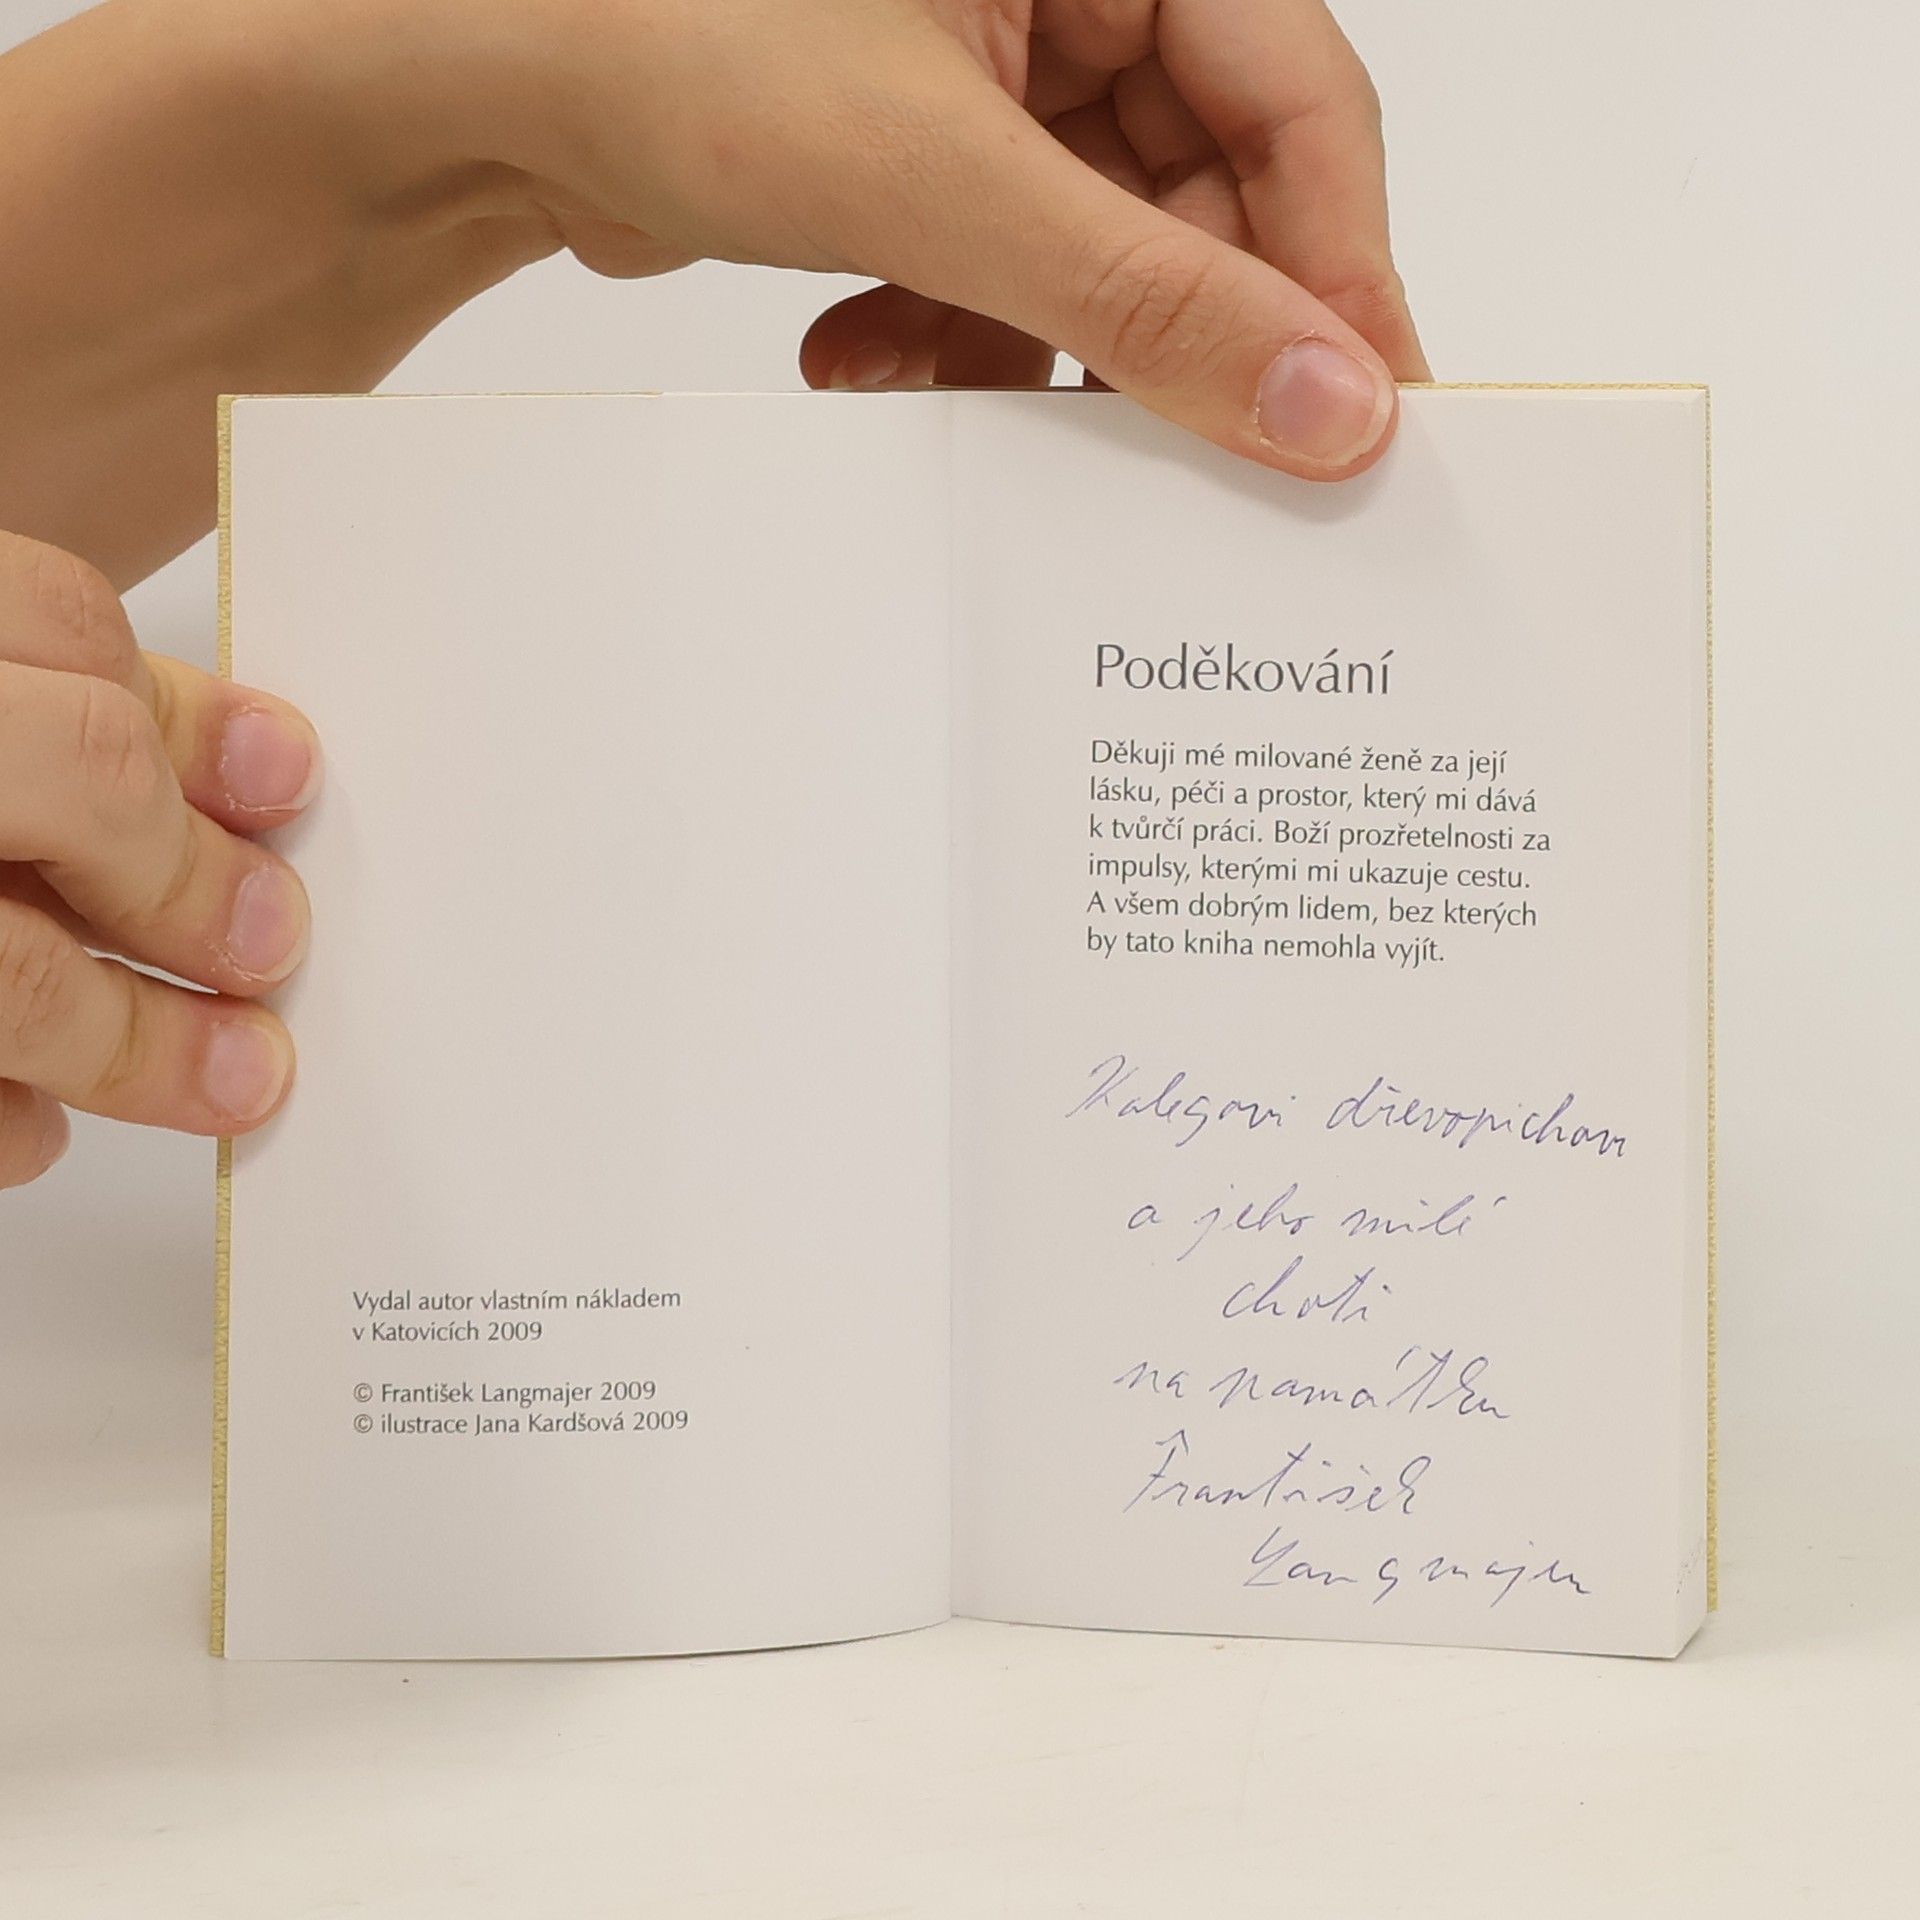 Vydal autor vlastním nákladem
v Katovicích 2009
© František Langmajer 2009
© ilustrace Jana Kardšová 2009
Poděkování
Děkuji mé milované ženě za její
lásku, péči a prostor, který mi dává
k tvůrčí práci. Boží prozřetelnosti za
impulsy, kterými mi ukazuje cestu.
A všem dobrým lidem, bez kterých
by tato kniha nemohla vyjít.
Kolegovi dřevopichovi
a jeho milé
choti
na památku
František
Langmajer